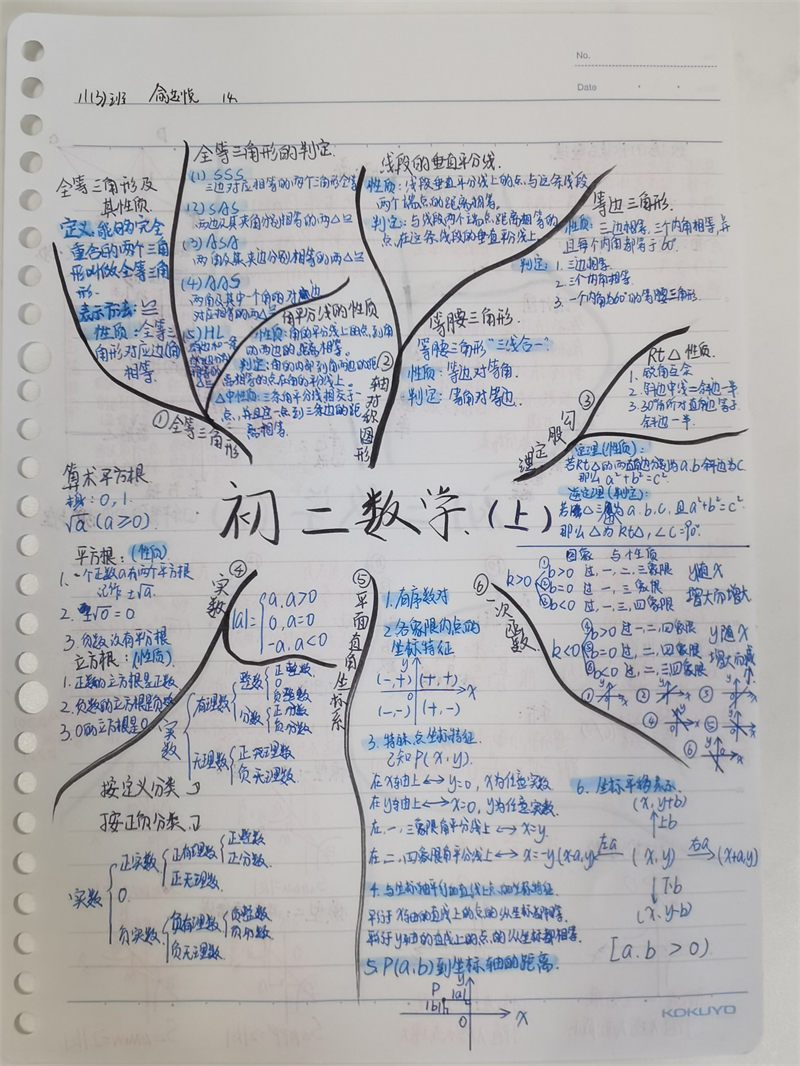 No.
Date
全等三角形的判定.
(1) SSS
三边对应相等的两个三角形全等
(2) SAS
两边及其夹角分别相等的两△≌
(3) ASA
两角及其夹边分别相等的两△≌
(4) AAS
两角及其中一个角的对边
对应相等的两△≌
(5) HL
全等三角形及
其性质
定义: 能够完全
重合的两个三角
形叫做全等三角
形.
表示方法: ≌
性质: 全等三
角形对应边角
相等.
①全等三角形
角平分线的性质
性质: 角的平分线上的点到角
的两边的距离相等.
判定: 角的内部到角两边的距
离相等的点在角的平分线上.
△中性质: 三条角平分线相交于一
点, 并且这一点到三条边的距
离相等.
线段的垂直平分线.
性质: 线段垂直平分线上的点与这条线段
两个端点的距离相等.
判定: 与线段两个端点距离相等的
点,在这条线段的垂直平分线上.
②轴对称图形
等腰三角形.
等腰三角形"三线合一"
性质: 等边对等角.
判定: 等角对等边.
等边三角形.
性质: 三边相等,三个内角相等,并
且每个内角都等于60°.
判定: 1. 三边相等.
2. 三个内角相等.
3. 一个内角为60°的等腰三角形.
③勾股定理
Rt△性质.
1. 锐角互余
2. 斜边中线=斜边一半.
3. 30°所对直角边等于
斜边一半.
定理(性质):
若Rt△的两直角边分别为a.b.斜边为c.
那么 a²+b²=c².
逆定理(判定):
若△三边为a.b.c, 且a²+b²=c²
那么△为Rt△, ∠C=90°.
初二数学.(上)
算术平方根
: 0, 1.
√a (a≥0)
平方根: (性质)
1. 一个正数a有两个平方根
记作 ±√a.
2. ±√0=0
3. 负数没有平方根
立方根: (性质)
1. 正数的立方根是正数
2. 负数的立方根是负数
3. 0的立方根是0
④实数
|a|= { a, a>0
0, a=0
-a, a<0
实数 { 有理数 { 整数 { 正整数
0
负整数
分数 { 正分数
负分数
无理数 { 正无理数
负无理数
按定义分类
按正负分类
实数 { 正实数 { 正有理数 { 正整数
正分数
正无理数
0
负实数 { 负有理数 { 负整数
负分数
负无理数
⑤平面直角坐标系
1. 有序数对
2. 各象限内点的
坐标特征
y
(-,+) (+,+)
0 x
(-,-) (+,-)
3. 特殊点坐标特征
已知P(x,y).
在x轴上↔y=0, x为任意实数
在y轴上↔x=0, y为任意实数.
在一,三象限角平分线上↔x=y.
在二,四象限角平分线上↔x=-y
4. 与坐标轴平行的直线上点的坐标特征
平行于x轴的直线上的点的纵坐标都相等.
平行于y轴的直线上的点的纵坐标都相等
5. P(a,b)到坐标轴的距离.
y
P |a|
|b|
0 x
⑥一次函数
图象 与 性质
k>0 { ①b>0 过一,二,三象限
②b=0 过一,三象限
③b<0 过一,三,四象限
y随x
增大而增大
k<0 { ④b>0 过一,二,四象限
⑤b=0 过二,四象限
⑥b<0 过二,三四象限
y随x
增大而减
① ② ③
④ ⑤
⑥
6. 坐标平移表示
(x, y+b)
↑上b
(x-a,y) ←左a (x,y) 右a→ (x+a,y)
↓下b
(x, y-b)
[a.b>0)
KOKUYO